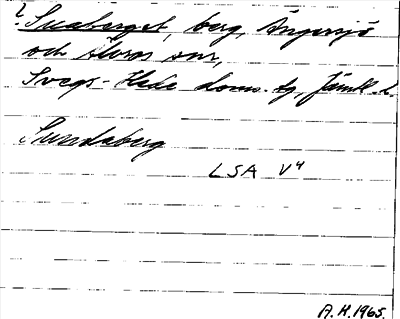 ? Snaberget, berg, Ängersjö
och Älvros snr,
Svegs - Hede doms. tg, Jämtl. l.
Sundsberg
LSA V4
A.H. 1965.